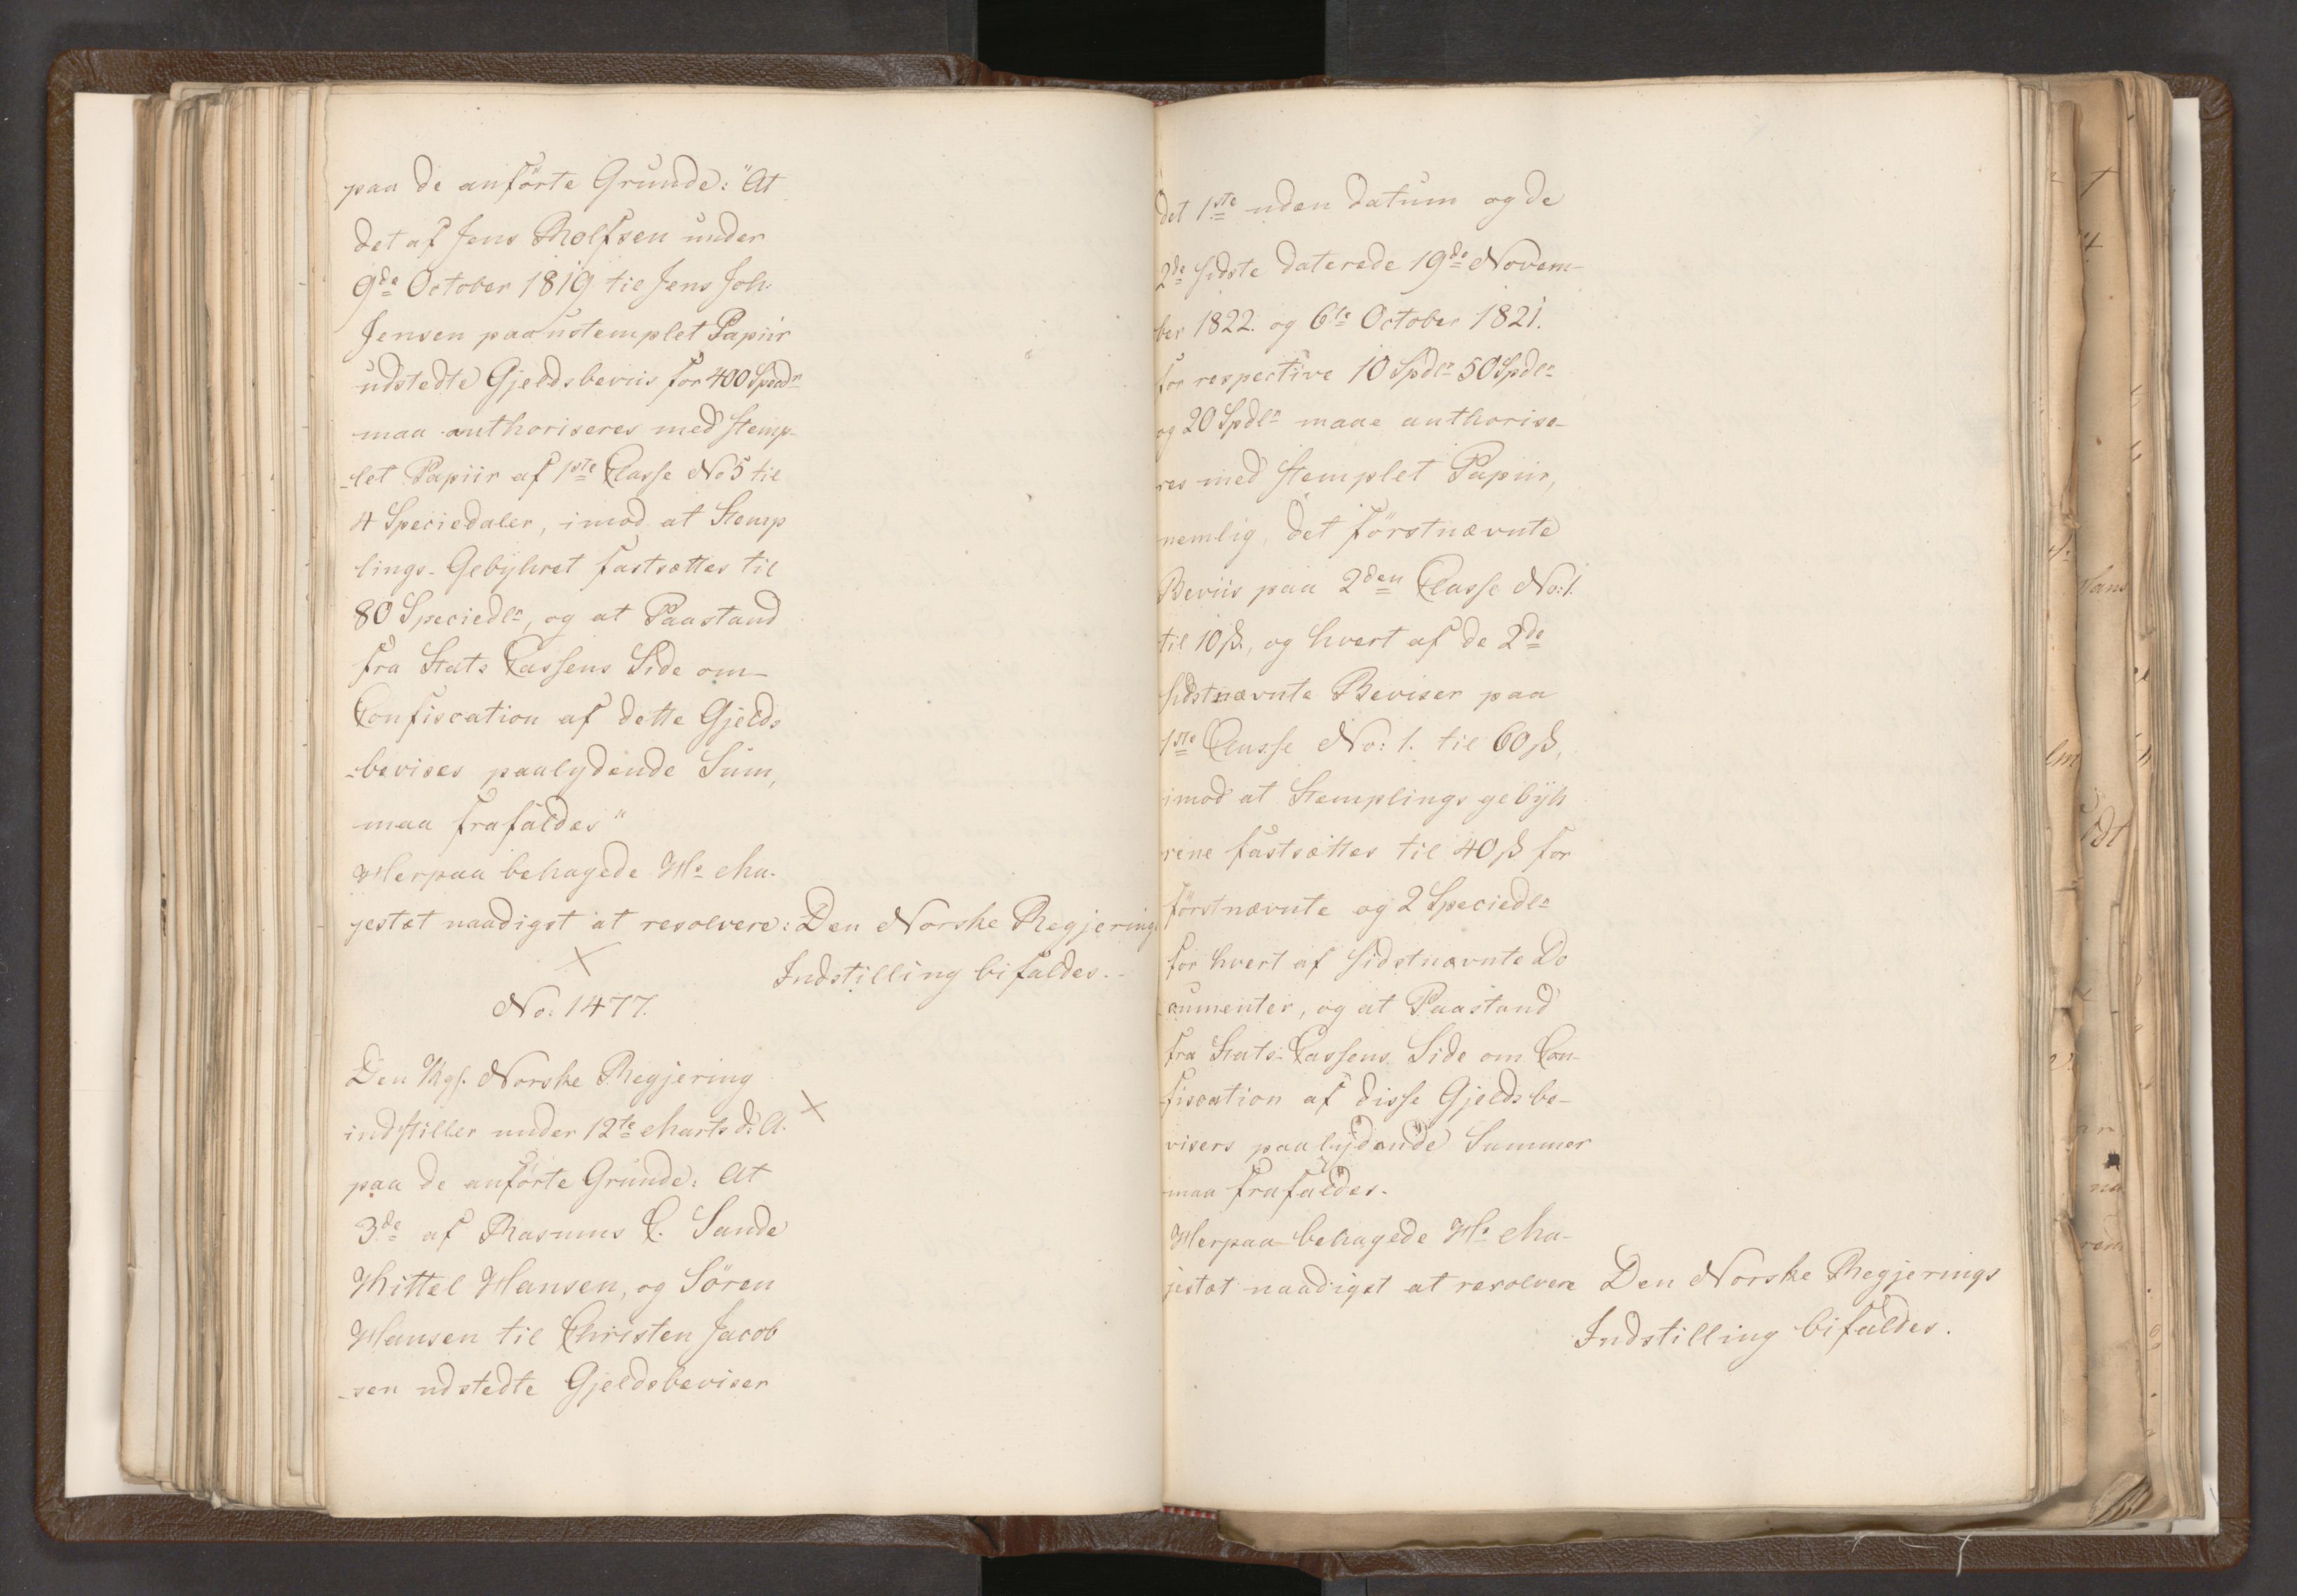 paa de anförte Grunde: "At
det af Jens Rolfsen under
9de October 1819 til Jens Joh.
Jensen paa ustemplet Papiir
udstedte Gjeldsbeviis for 400 Specdr
maa authoriseres med stemp-
-let Papiir af 1ste Classe No 5 til
4 Speciedaler, imod at Stemp
lings-Gebyhret fastsættes til
80 Speciedlr, og at Paastand
fra Stats Cassens Side om
Confiscation af dette Gjelds
-bevises paalydende Sum,
maa frafaldes"
Herpaa behagede Hs Ma-
jestæt naadigst at resolvere: Den Norske Regjerings
Indstilling bifaldes.
No: 1477.
Den Kgl. Norske Regjering
indstiller under 12te Marts d: A.
paa de anförte Grunde: At
3de af Rasmus C. Sande
Kittel Hansen, og Sören
Hansen til Christen Jacob
-sen udstedte Gjeldsbeviser
det 1ste uden datum og de
2de sidste daterede 19de Novem-
ber 1822. og 6te October 1821.
for respective 10 Spdlr 50 Spdlr
og 20 Spdlr maae authorise-
res med stemplet Papiir,
nemlig, det förstnævnte
Beviis paa 2den Classe No: 1.
til 10 ß, og hvert af de 2de
sidstnævnte Beviser paa
1ste Classe No: 1. til 60 ß,
imod at Stemplingsgebyh
rene fastsættes til 40 ß for
förstnævnte og 2 Speciedlr
for hvert af sidstnævnte Do
cumenter, og at Paastand
fra Stats-Cassens Side om Con-
fiscation af disse Gjeldsbe-
visers paalydende Summer
maa frafaldes.
Herpaa behagede Hs Ma-
jestæt naadigst at resolvere Den Norske Regjerings
Indstilling bifaldes.